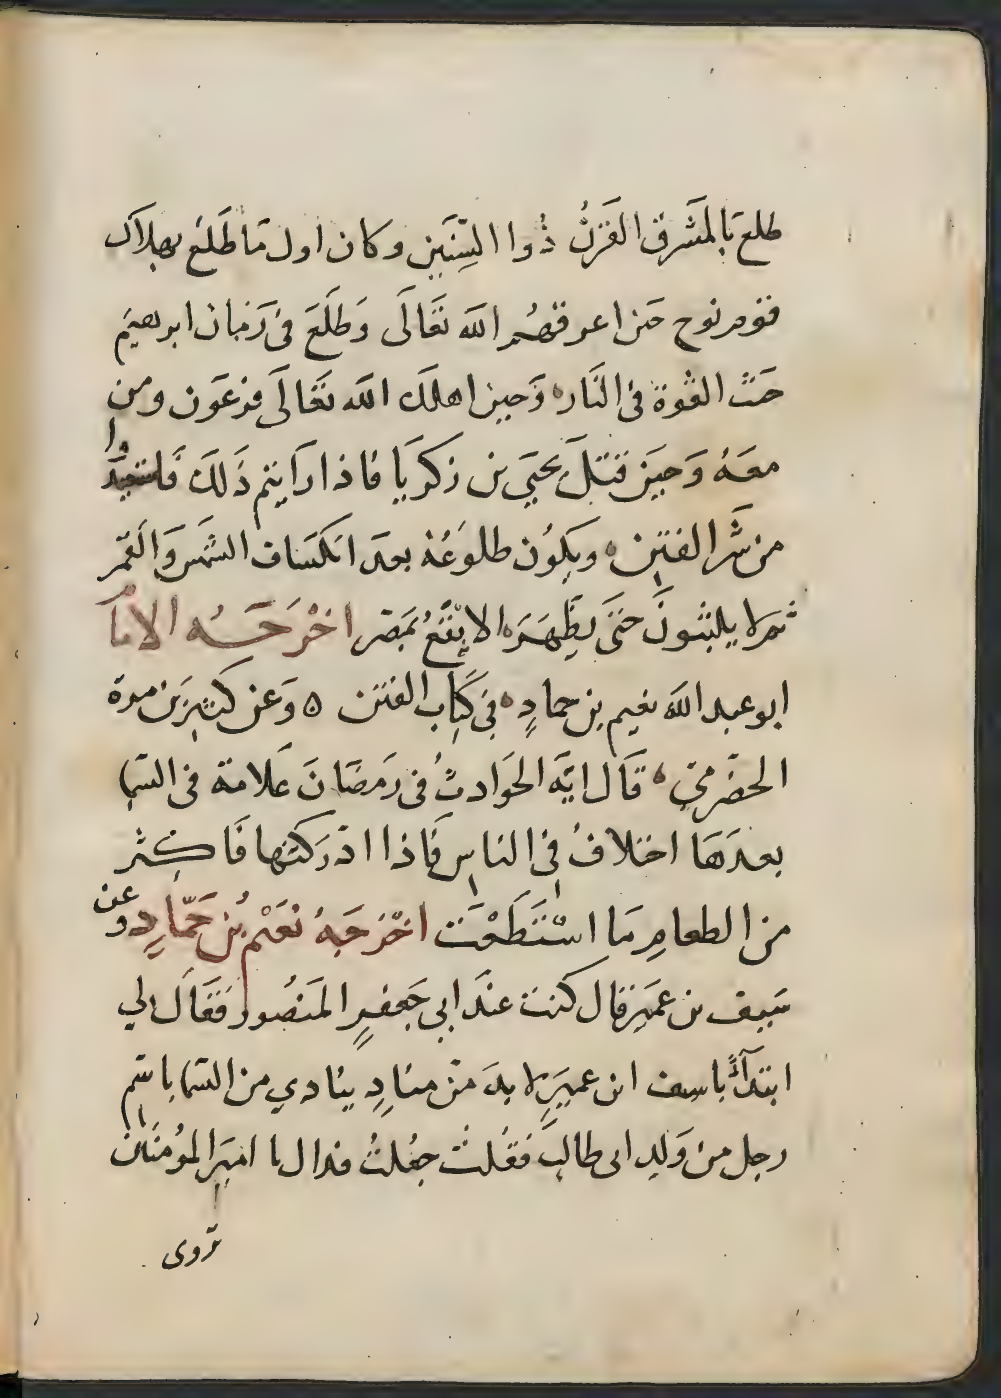 طلع بالمَشَرق القَرنُ ذُوا السِّنَين وكان اول مَا طَلَعُ بهلاك
قوم نوح حَين اغرقهُم اللَه تَعَالَى وَطَلَعَ فى زَمَان ابرهيمَ
حَيَث القُوة فى النَار وَحين اهلك اللَه تَعَالَى فرعَون ومن
معَهُ وَحيَن قتَلَ يحيَي بن زكريَا فاذا رَايتم ذَلكَ فَاستعيذوا
من شَرّ الفتَن ويكوُن طلوعُهُ بعدَ انكسَاف الشمَس وَالقَمر
ثم لا يلبثونَ حَتىَ يظِهَرَه الابقَعُ بمَصر اخْرَجَــهُ الامَام
ابو عبد اللَه نعيم بن حمادٍ فى كتَاب الفتن ٥ وَعن كَثيرَ بن مرة
الحضَرمىّ قَالَ ايَة الحَوادثُ فى رَمضَانَ عَلامَة فى السَما
بعدَهَا اختلافُ فى الناس فَاذا ادْرَكتَها فَاكثر
من الطعامِ مَا اسْتَطَعْت اخْرَجَهُ نعَيْم بُن حَمّادٍ وعن
سَيف بن عمَيرَ قال كنت عندَ ابى جَعفرٍ المَنصُور فَقَالَ لي
ابتدآءً ياسيف ابن عميرَ لا بدَ مَن منادٍ ينادي من السَما باسَم
رجل من وَلد ابى طالبَ فقُلتُ جعُلتُ فداك يا اميَر المؤمنَين
تَروى